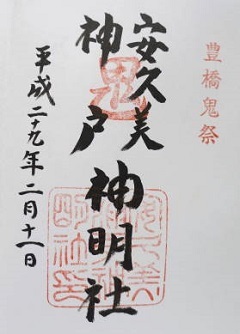 豊橋鬼祭
安久美
神戸
神明社
平成二十九年二月十一日
鬼